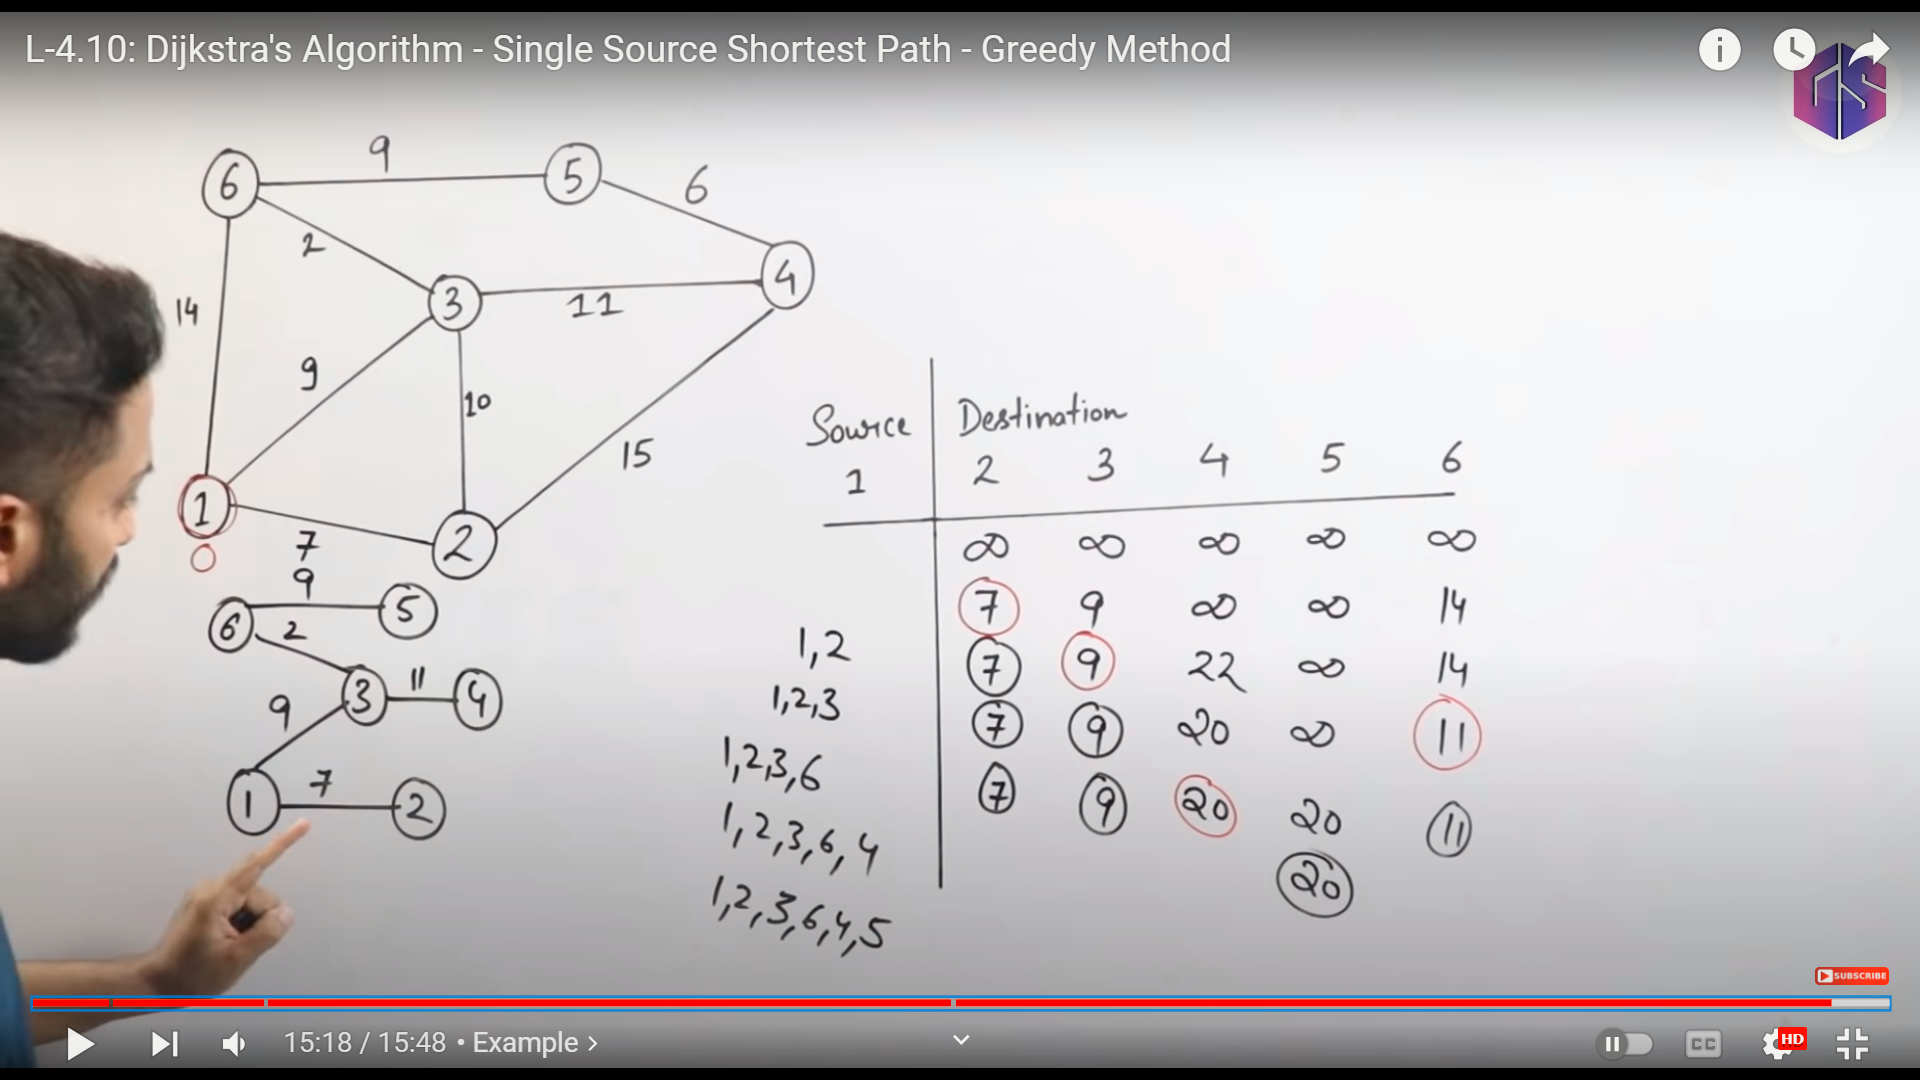 L-4.10: Dijkstra's Algorithm - Single Source Shortest Path - Greedy Method
6 9 5 6
2
14 3 11 4
9
10
15
1 7 2
0
9
6 5
2
3 11 4
9
1 7 2
Source Destination
1 2 3 4 5 6
∞ ∞ ∞ ∞ ∞
7 9 ∞ ∞ 14
1,2 7 9 22 ∞ 14
1,2,3 7 9 20 ∞ 11
1,2,3,6 7 9 20 20 11
1,2,3,6,4 20
1,2,3,6,4,5
SUBSCRIBE
15:18 / 15:48 • Example ›
CC HD